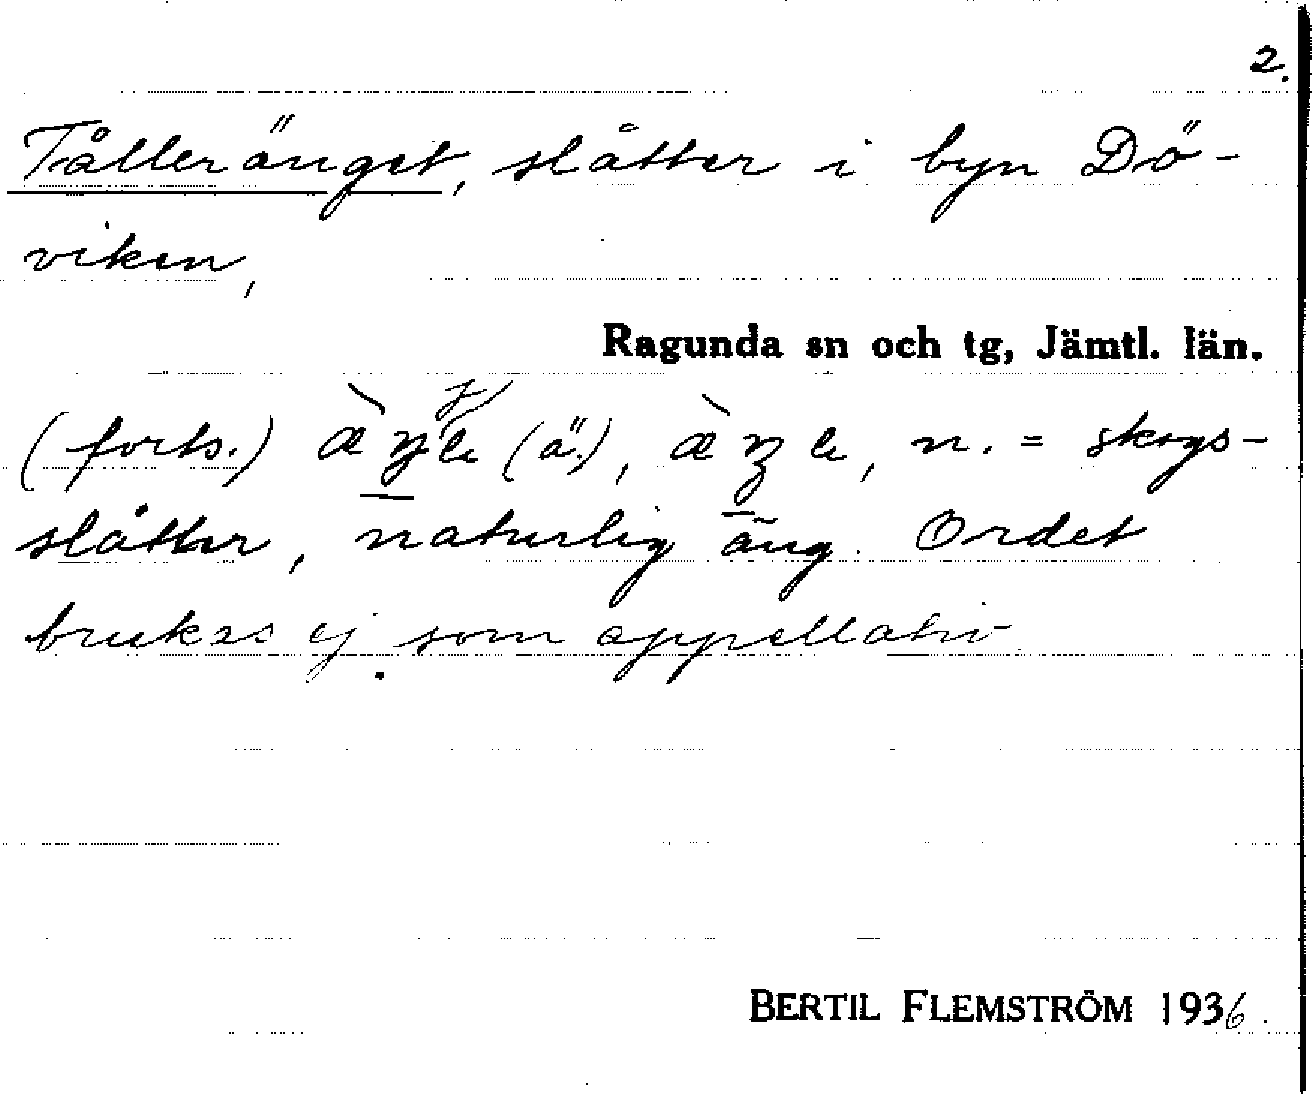 2.
Tålleränget, slåtter i byn Dö-
viken,
Ragunda sn och tg, Jämtl. län.
(forts.) (ä.), n. = skogs-
slåtter, naturlig äng. Ordet
brukas ej som appellativ
BERTIL FLEMSTRÖM 1936.